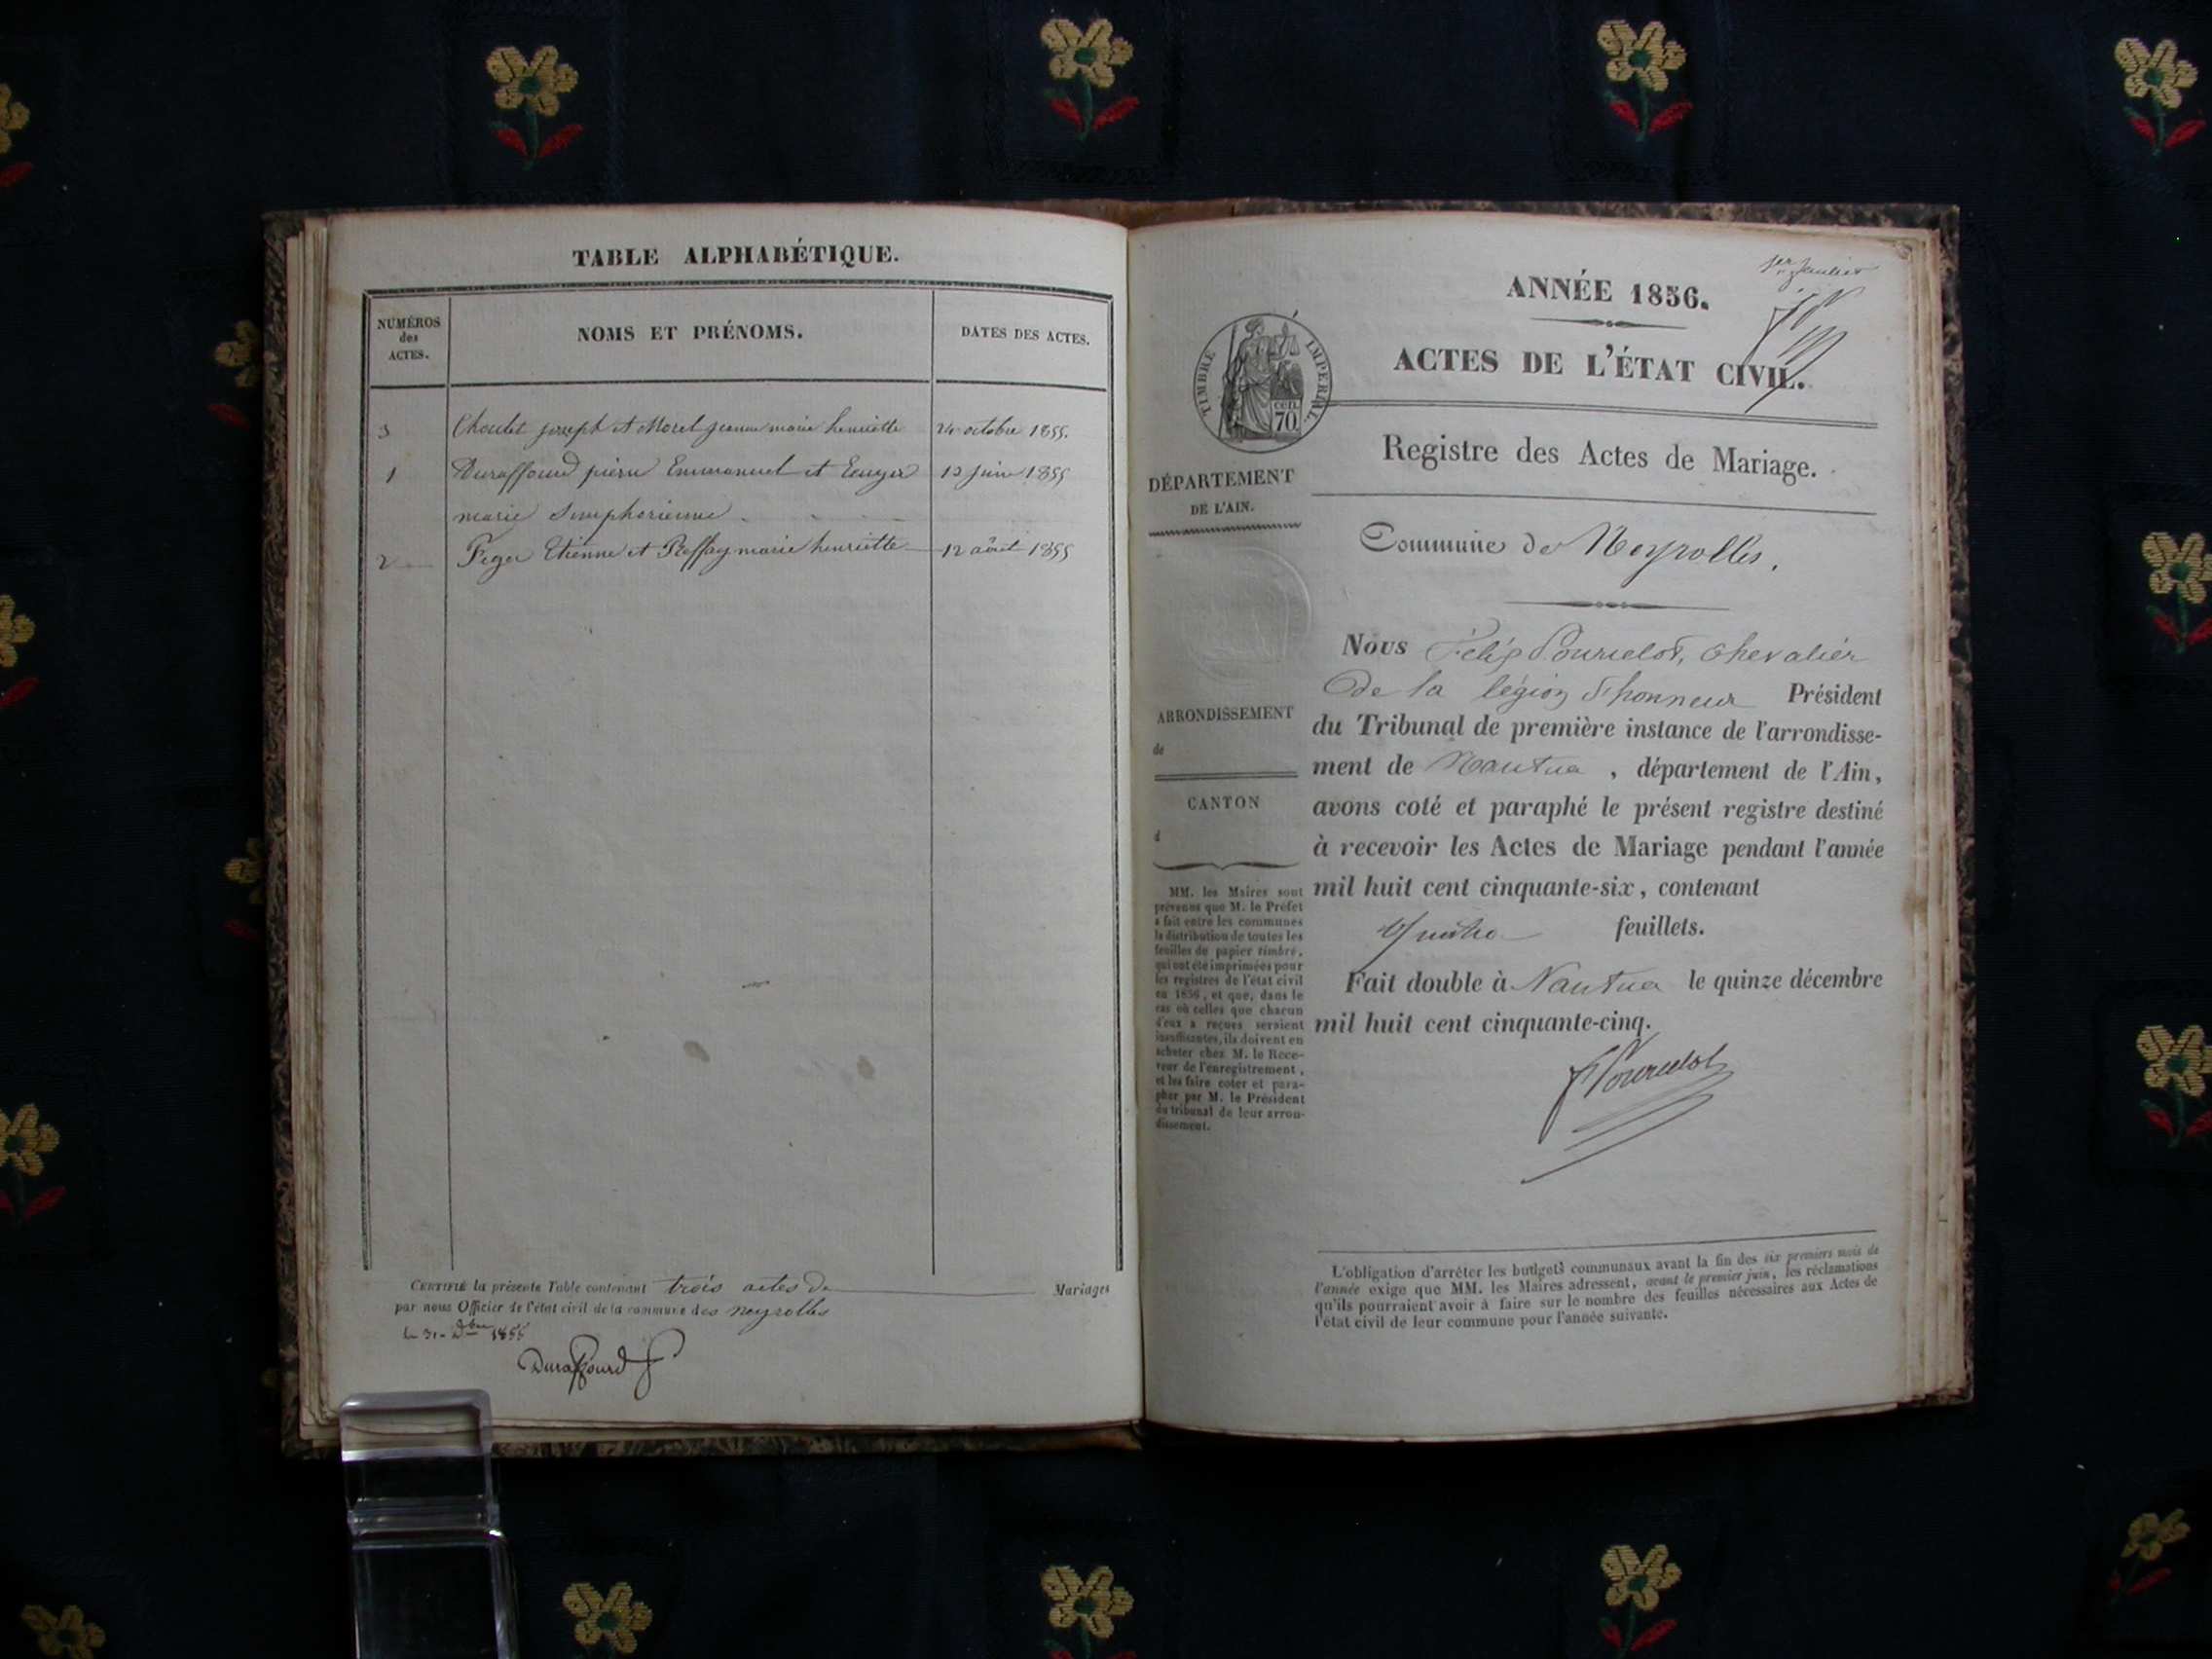 TABLE ALPHABÉTIQUE.
NUMÉROS
des
ACTES.
NOMS ET PRÉNOMS.
DATES DES ACTES.
3 Choulet joseph et Morel jeanne marie henriette 24 octobre 1855.
1 Duraffourd pierre Emmanuel et 12 juin 1855
marie Simphorienne
2 Feger Etienne et Reffay marie henriette 12 août 1855
CERTIFIÉ la présente Table contenant trois actes de Mariages
par nous Officier de l'état civil de la commune des neyrolles
le 31 Xbre 1855
Duraffourd
1er feuillet
ANNÉE 1856.
ACTES DE L'ÉTAT CIVIL.
TIMBRE IMPÉRIAL
cen.
70
Registre des Actes de Mariage.
DÉPARTEMENT
DE L'AIN.
Commune de Neyrolles.
ARRONDISSEMENT
de
CANTON
d
MM. les Maires sont
prévenus que M. le Préfet
a fait entre les communes
la distribution de toutes les
feuilles de papier timbré,
qui ont été imprimées pour
les registres de l'état civil
en 1856, et que, dans le
cas où celles que chacun
d'eux a reçues seraient
insuffisantes, ils doivent en
acheter chez M. le Rece-
veur de l'enregistrement,
et les faire coter et para-
pher par M. le Président
du tribunal de leur arron-
dissement.
Nous Félix Pourcelot, chevalier
de la légion d'honneur Président
du Tribunal de première instance de l'arrondisse-
ment de Nantua, département de l'Ain,
avons coté et paraphé le présent registre destiné
à recevoir les Actes de Mariage pendant l'année
mil huit cent cinquante-six, contenant
quatre feuillets.
Fait double à Nantua le quinze décembre
mil huit cent cinquante-cinq.
F Pourcelot
L'obligation d'arrêter les budgets communaux avant la fin des six premiers mois de
l'année exige que MM. les Maires adressent, avant le premier juin, les réclamations
qu'ils pourraient avoir à faire sur le nombre des feuilles nécessaires aux Actes de
l'état civil de leur commune pour l'année suivante.